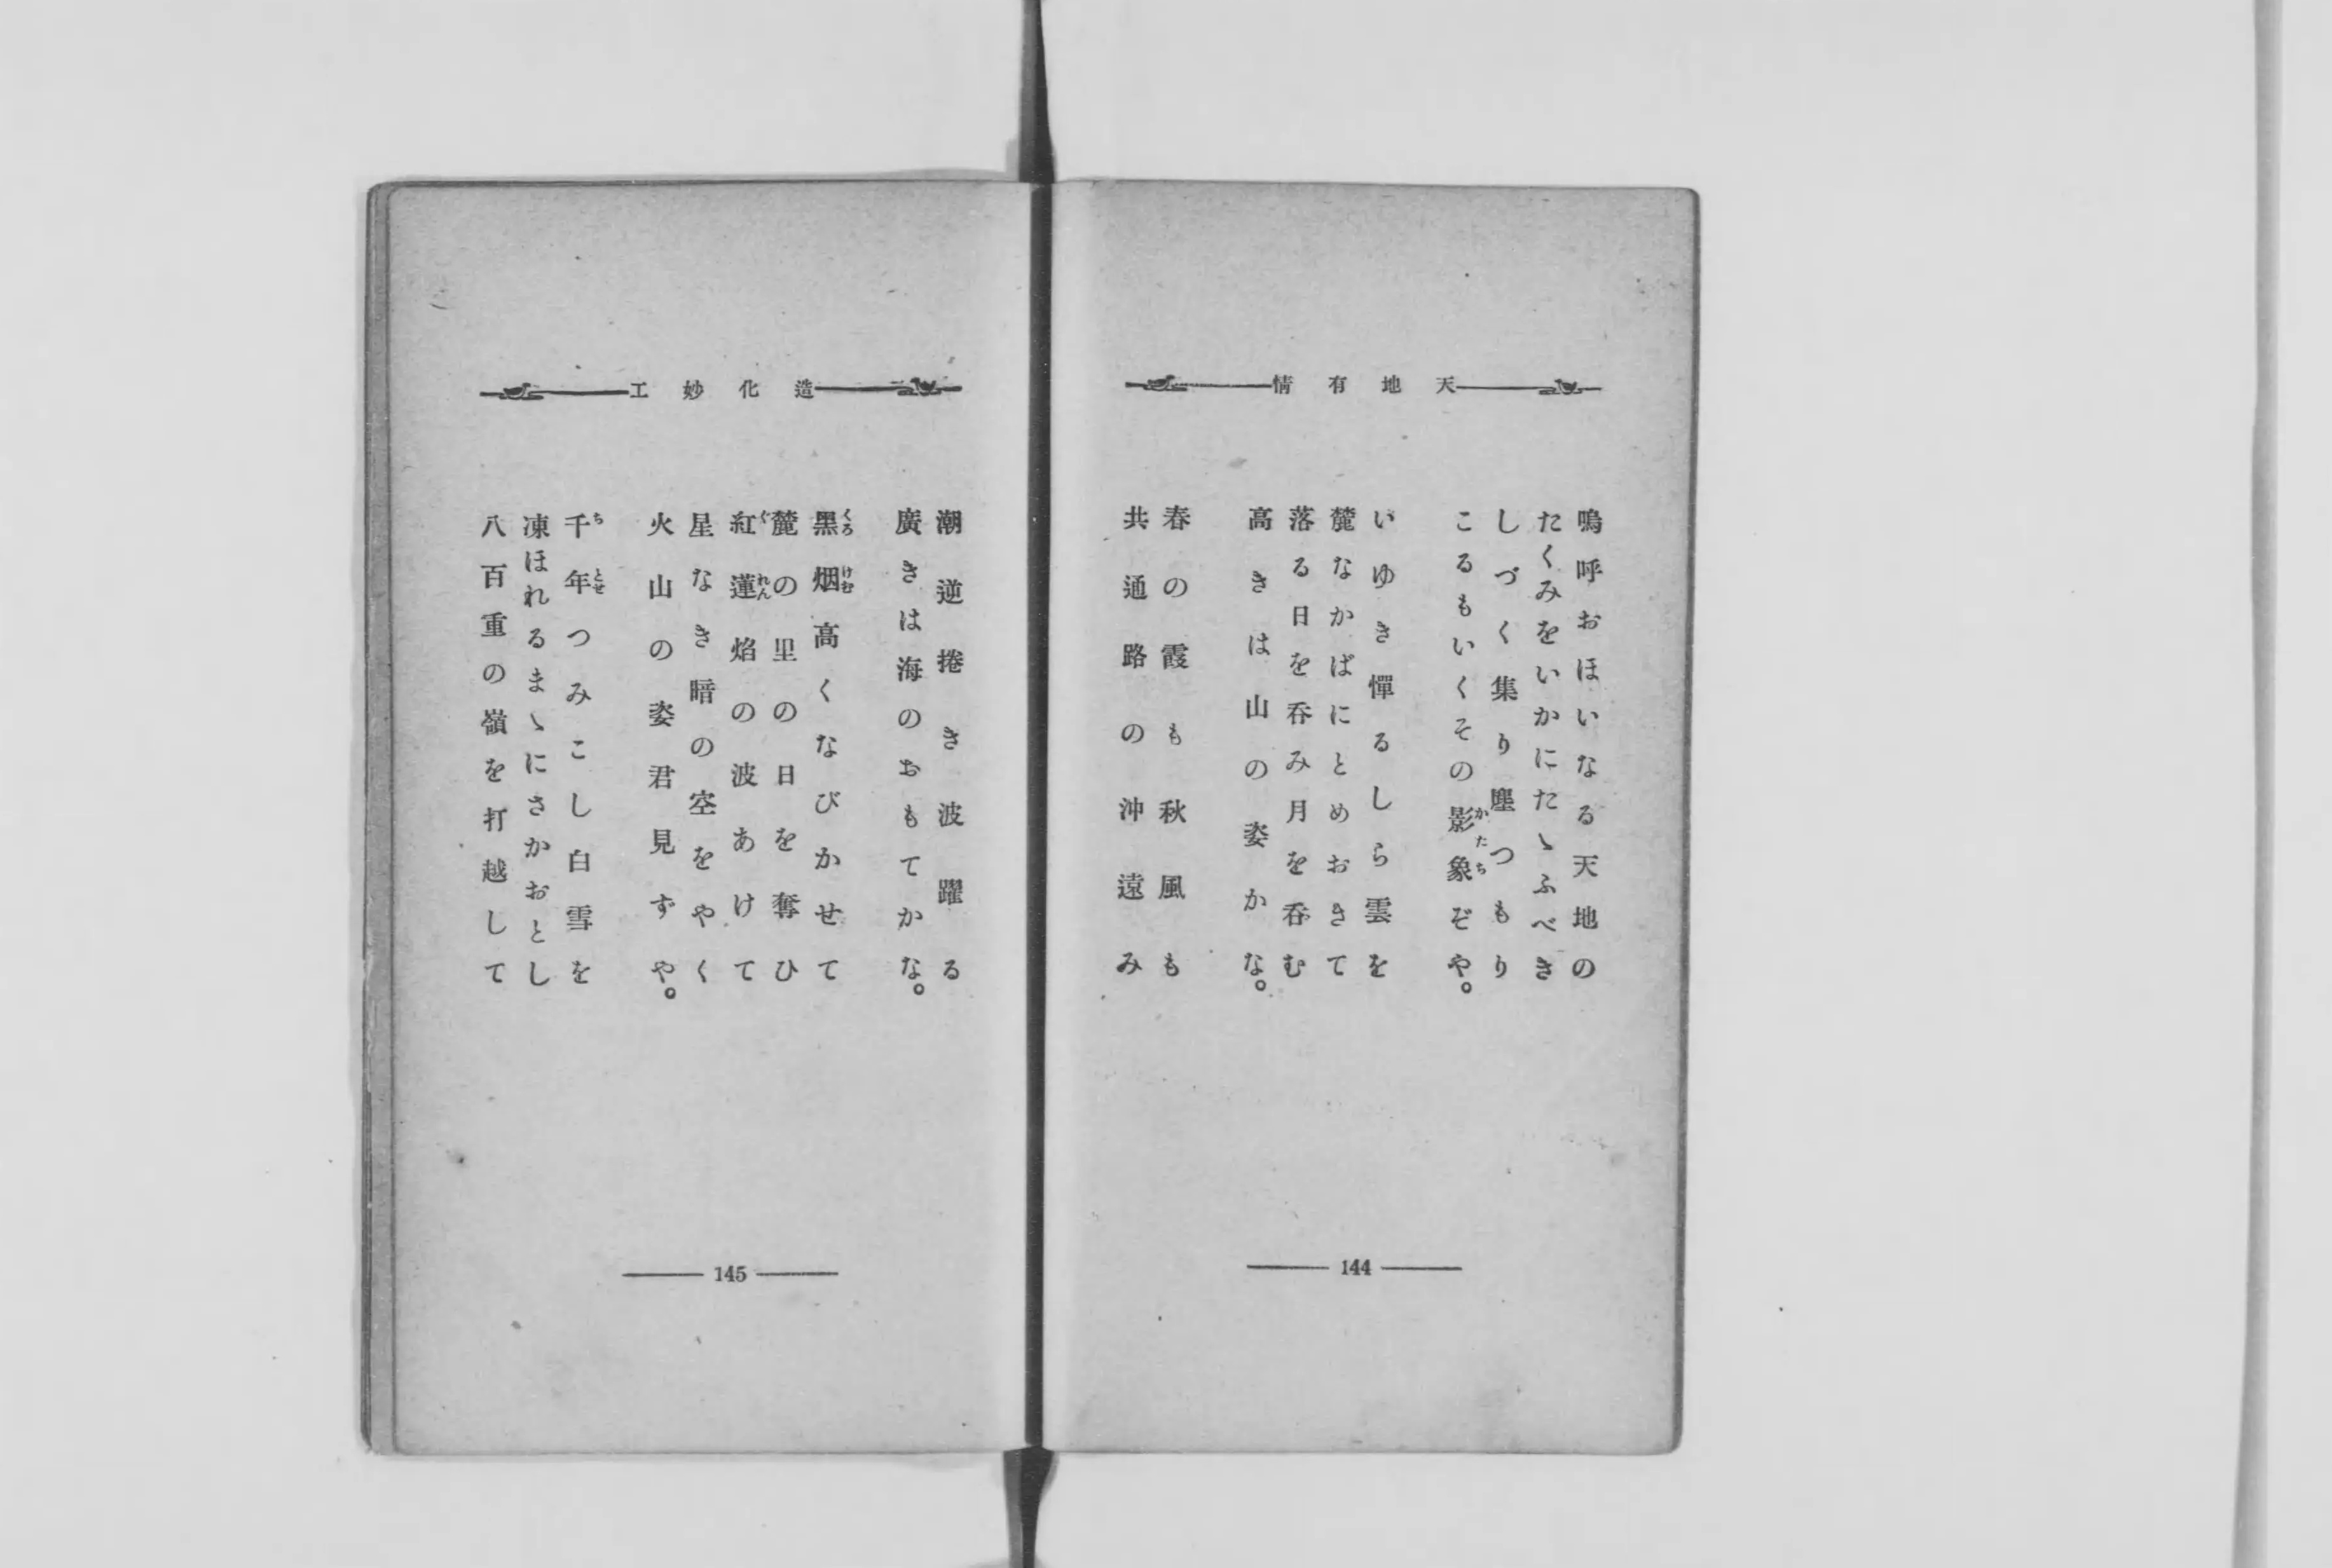 天地有情
嗚呼おほいなる天地の
たくみをいかにたゝふべき
しづく集り塵つもり
こるもいくその影象ぞや。
かたち
いゆき憚るしら雲を
麓なかばにとめおきて
落る日を呑み月を呑む
高きは山の姿かな。
春の霞も秋風も
共通路の沖遠み
144
造化妙工
潮逆捲き波躍る
廣きは海のおもてかな。
黑烟高くなびかせて
くろけむ
麓の里の日を奪ひ
紅蓮焰の波あけて
ぐれん
星なき暗の空をやく
火山の姿君見ずや。
千年つみこし白雪を
ちとせ
凍ほれるまゝにさかおとし
八百重の嶺を打越して
145